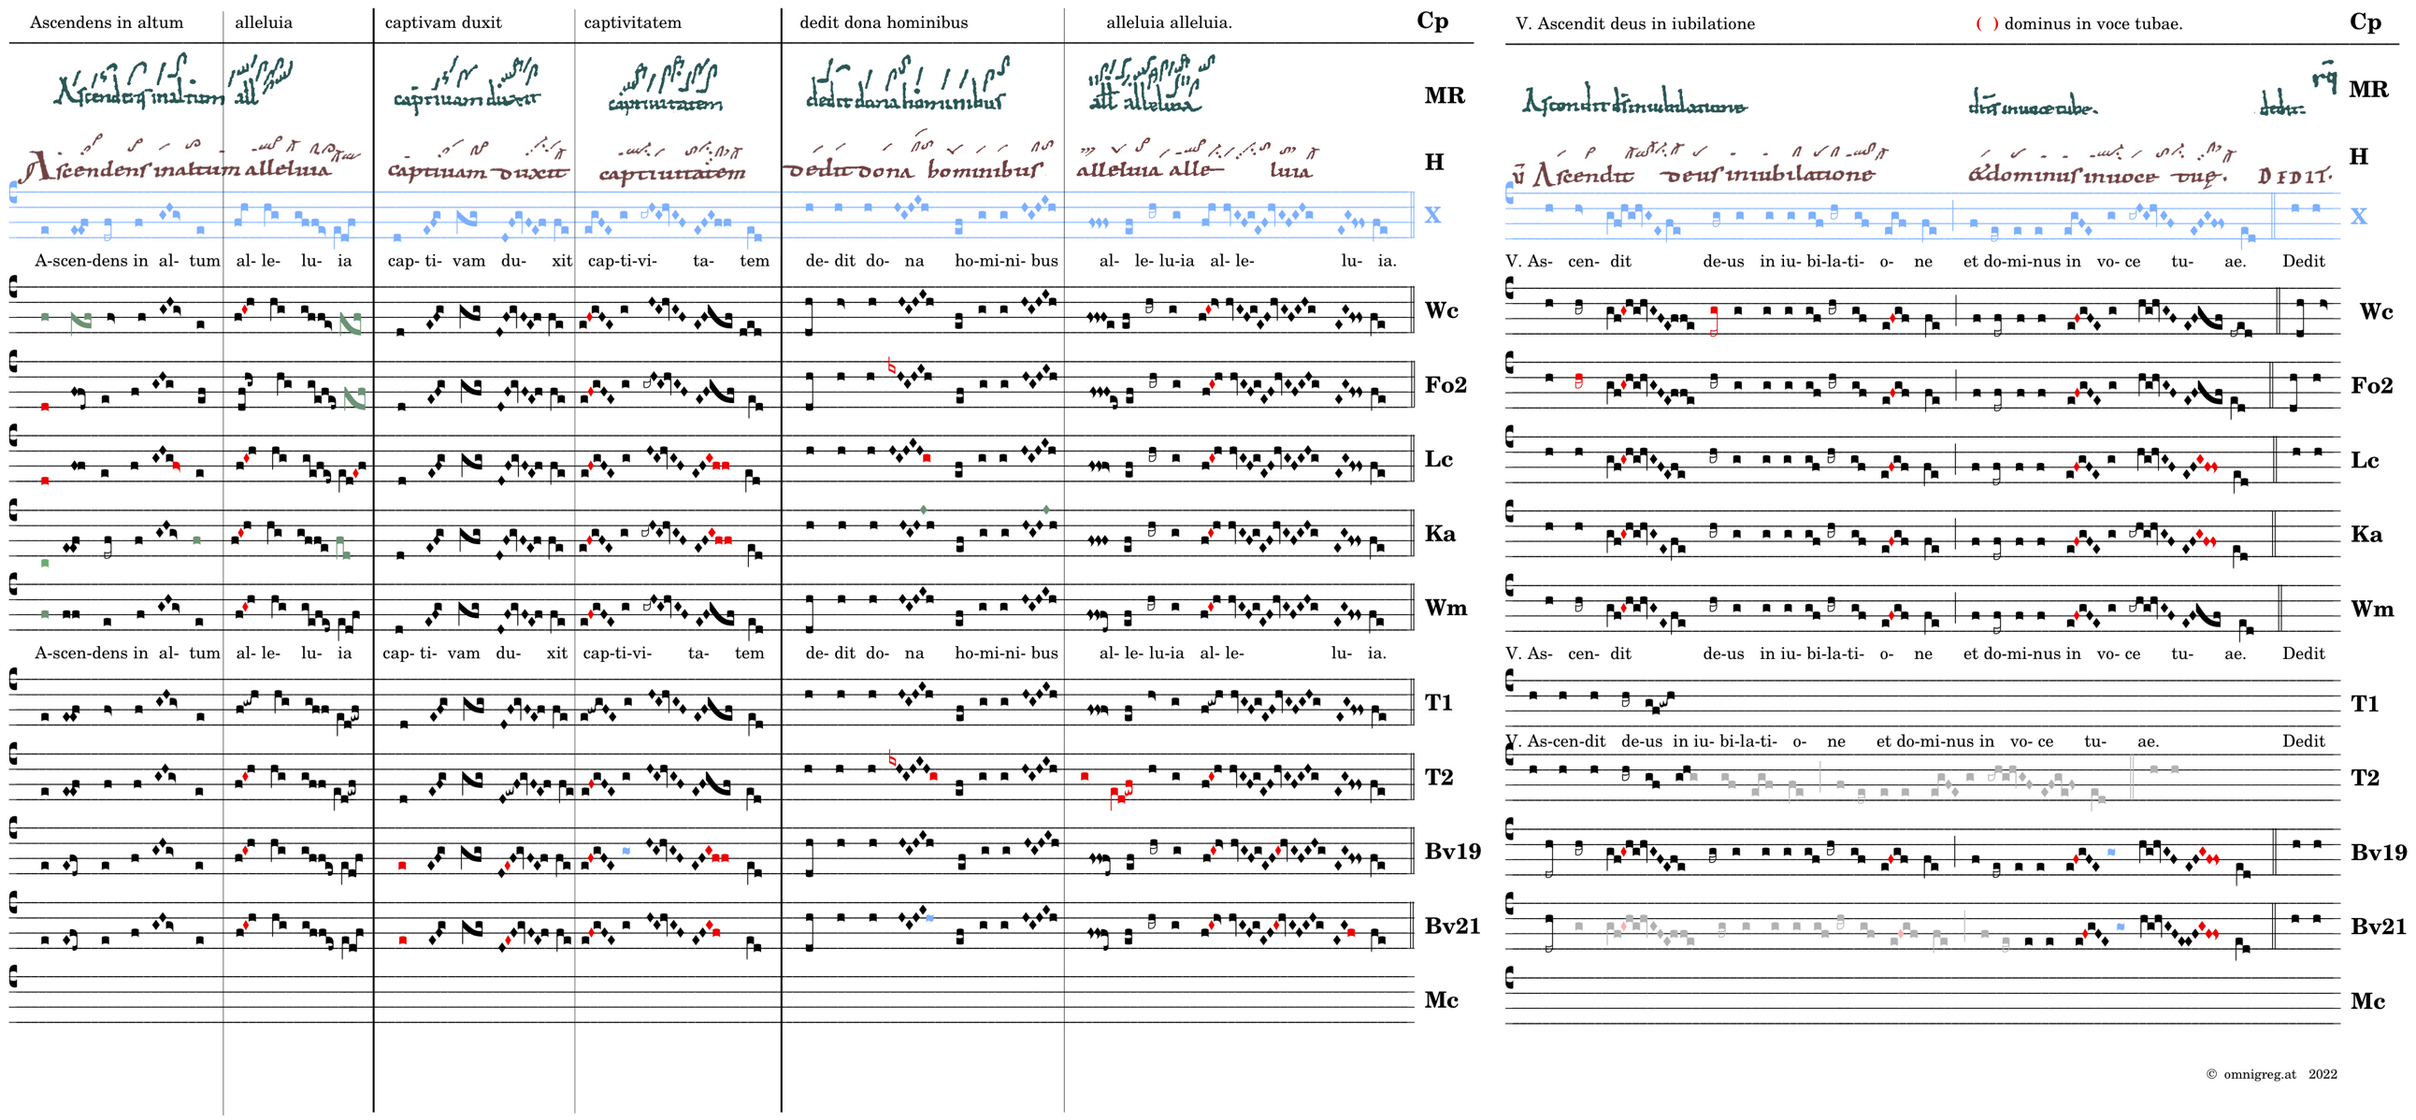 Ascendens in altum alleluia captivam duxit captivitatem dedit dona hominibus alleluia alleluia. Cp
V. Ascendit deus in iubilatione ( ) dominus in voce tubae. Cp
Ascendens in altum all captiuam duxit captiuitatem dedit dona hominibus all alleluia MR
MR
dedit.
Ascendens in altum alleluia captiuam duxit captiuitatem dedit dona hominibus alleluia alleluia H
Ascendit deus in iubilatione &dominus in uoce tuę. DEDIT. H
X
X
A-scen-dens in al- tum al- le- lu- ia cap- ti- vam du- xit cap-ti-vi- ta- tem de- dit do- na ho-mi-ni- bus al- le- lu-ia al- le- lu- ia.
V. As- cen- dit de-us in iu- bi-la-ti- o- ne et do-mi-nus in vo- ce tu- ae. Dedit
Wc
Wc
Fo2
Fo2
Lc
Lc
Ka
Ka
Wm
Wm
A-scen-dens in al- tum al- le- lu- ia cap- ti- vam du- xit cap-ti-vi- ta- tem de- dit do- na ho-mi-ni- bus al- le- lu-ia al- le- lu- ia.
V. As- cen- dit de-us in iu- bi-la-ti- o- ne et do-mi-nus in vo- ce tu- ae. Dedit
T1
T1
V. As-cen-dit de-us in iu- bi-la-ti- o- ne et do-mi-nus in vo- ce tu- ae. Dedit
T2
T2
Bv19
Bv19
Bv21
Bv21
Mc
Mc
© omnigreg.at 2022